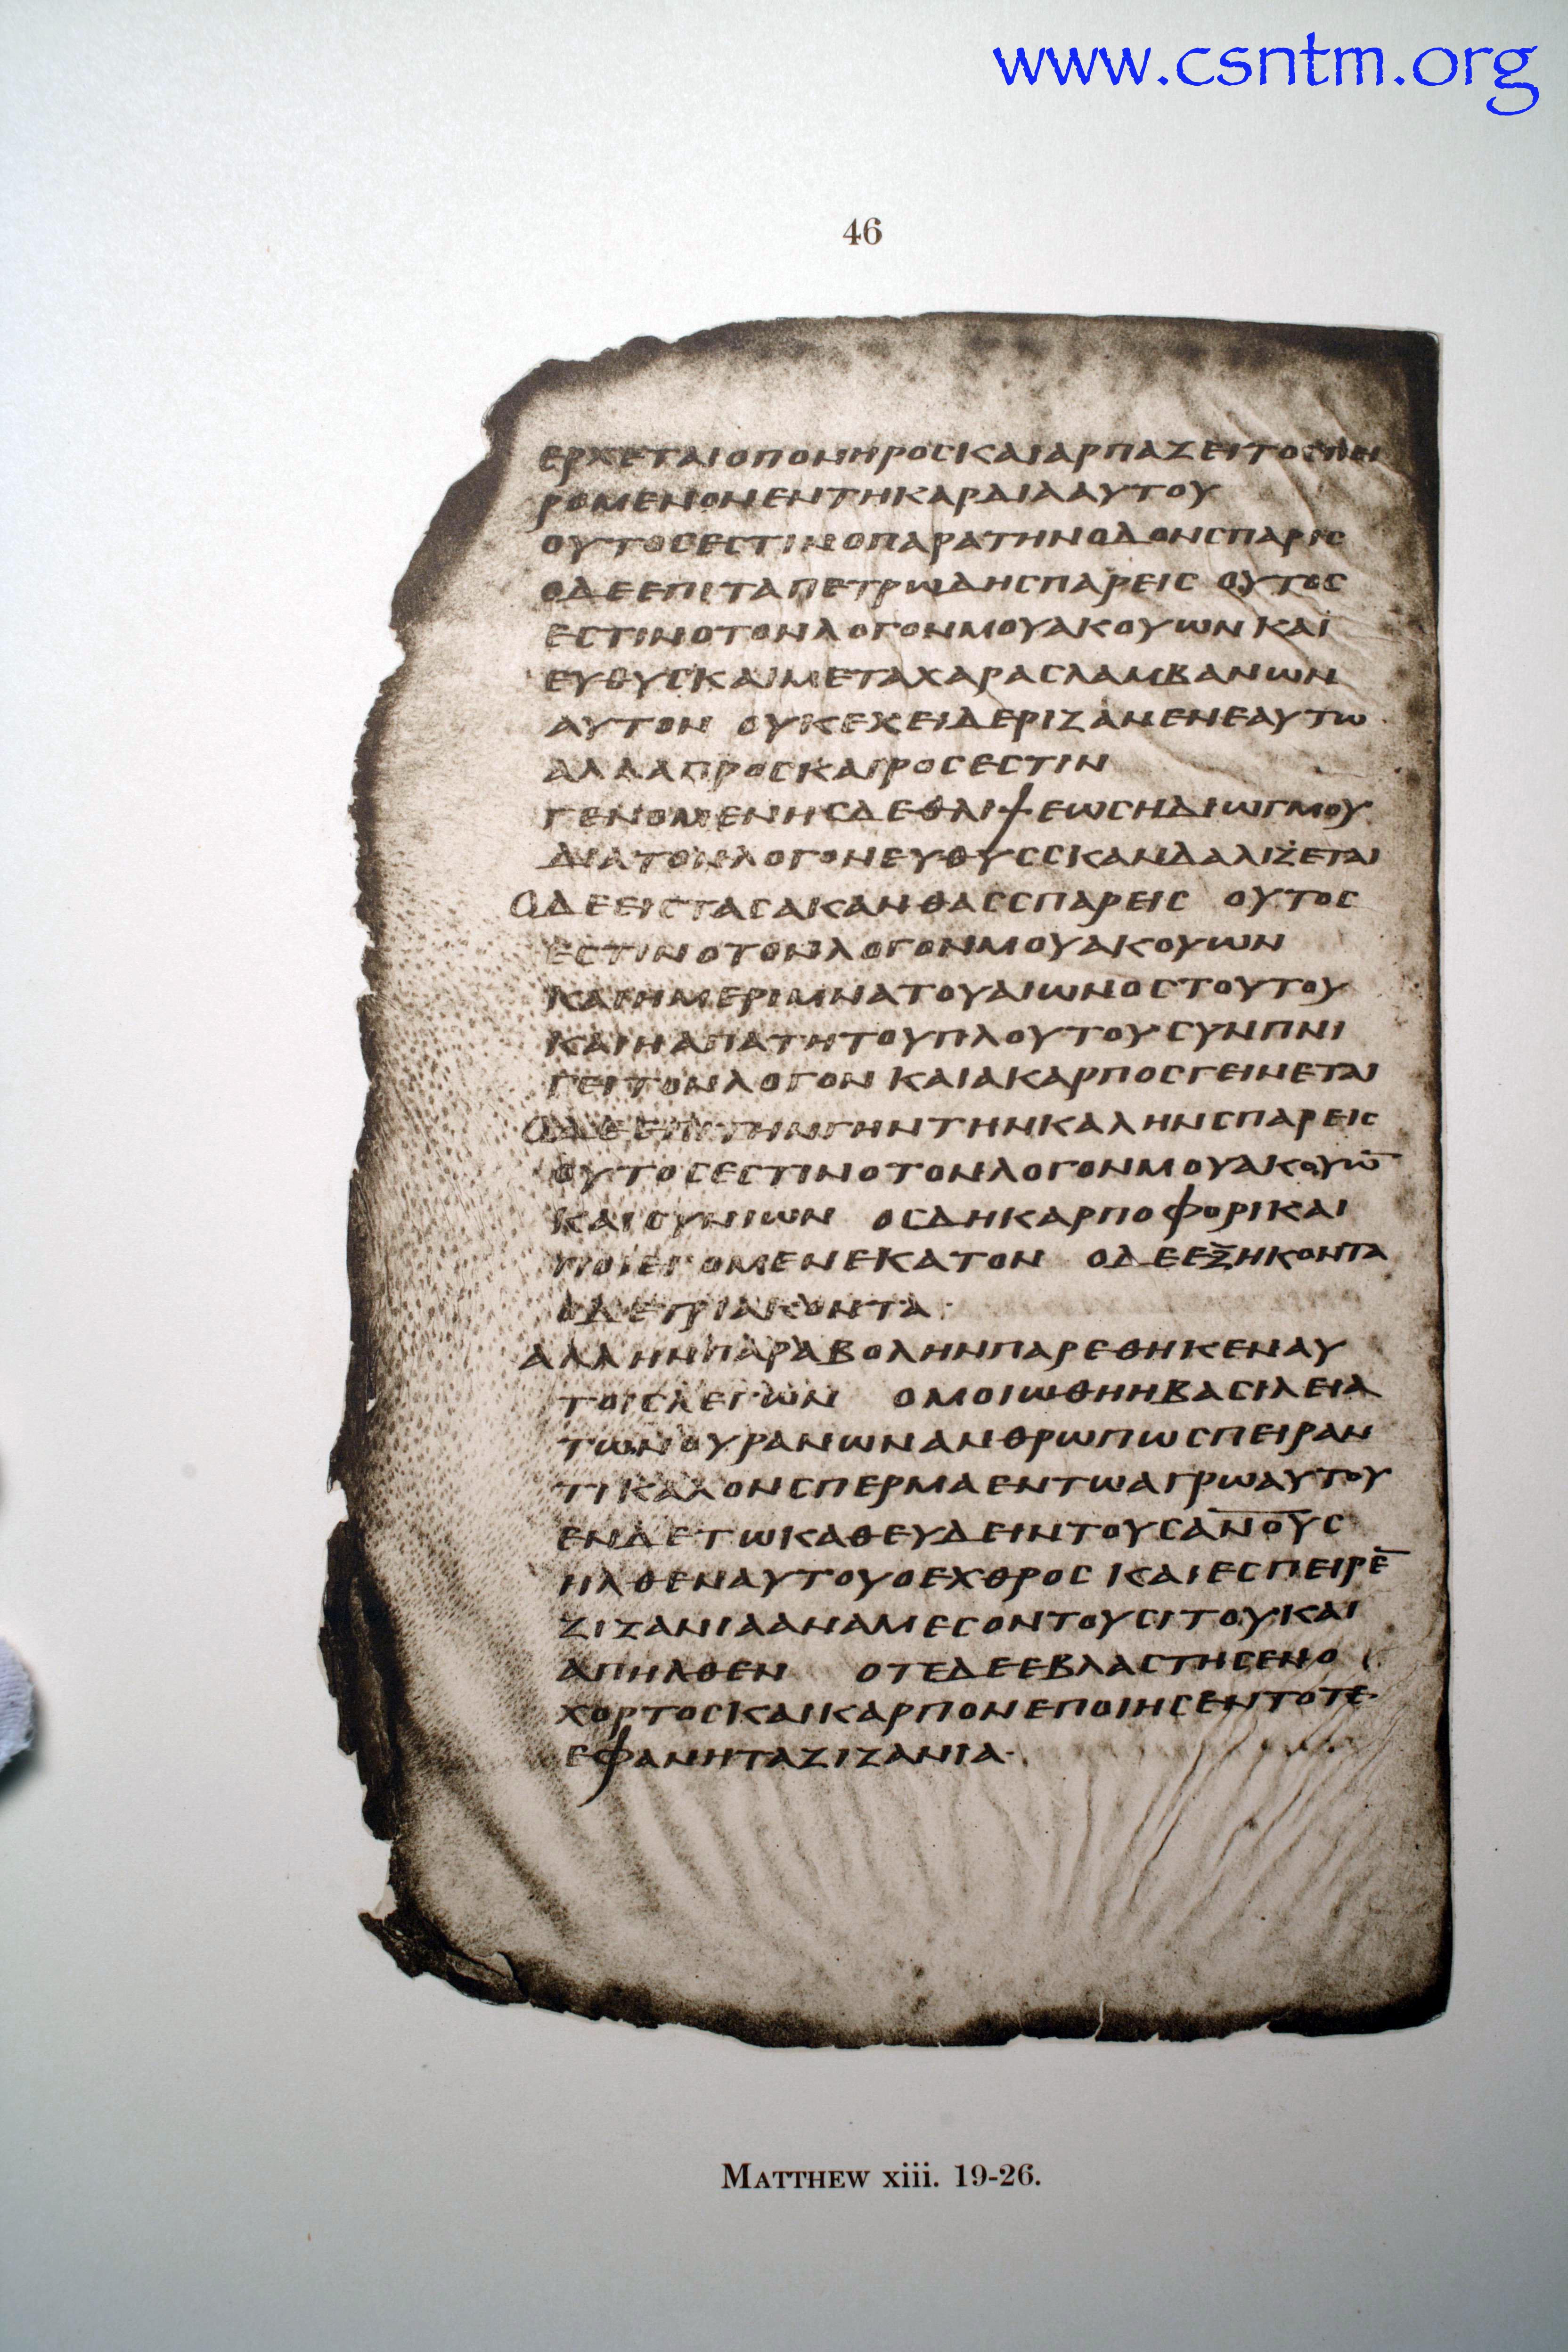 www.csntm.org
46
ΕΡΧΕΤΑΙΟΠΟΝΗΡΟΣΚΑΙΑΡΠΑΖΕΙΤΟΕΣΠΕΙ
ΡΟΜΕΝΟΝΕΝΤΗΚΑΡΔΙΑΑΥΤΟΥ
ΟΥΤΟϹΕϹΤΙΝΟΠΑΡΑΤΗΝΟΔΟΝϹΠΑΡΙϹ
ΟΔΕΕΠΙΤΑΠΕΤΡΩΔΗϹΠΑΡΕΙϹ ΟΥΤΟϹ
ΕϹΤΙΝΟΤΟΝΛΟΓΟΝΜΟΥΑΚΟΥΩΝΚΑΙ
ΕΥΘΥϹΚΑΙΜΕΤΑΧΑΡΑϹΛΑΜΒΑΝΩΝ
ΑΥΤΟΝ ΟΥΚΕΧΕΙΔΕΡΙΖΑΝΕΝΕΑΥΤΩ
ΑΛΛΑΠΡΟϹΚΑΙΡΟϹΕϹΤΙΝ
ΓΕΝΟΜΕΝΗϹΔΕΘΛΙΨΕΩϹΗΔΙΩΓΜΟΥ
ΔΙΑΤΟΝΛΟΓΟΝΕΥΘΥϹϹΚΑΝΔΑΛΙΖΕΤΑΙ
ΟΔΕΕΙϹΤΑϹΑΚΑΝΘΑϹϹΠΑΡΕΙϹ ΟΥΤΟϹ
ΕϹΤΙΝΟΤΟΝΛΟΓΟΝΜΟΥΑΚΟΥΩΝ
ΚΑΙΗΜΕΡΙΜΝΑΤΟΥΑΙΩΝΟϹΤΟΥΤΟΥ
ΚΑΙΗΑΠΑΤΗΤΟΥΠΛΟΥΤΟΥϹΥΝΠΝΙ
ΓΕΙΤΟΝΛΟΓΟΝ ΚΑΙΑΚΑΡΠΟϹΓΕΙΝΕΤΑΙ
ΟΔΕΕΠΙΤΗΝΓΗΝΤΗΝΚΑΛΗΝϹΠΑΡΕΙϹ
ΟΥΤΟϹΕϹΤΙΝΟΤΟΝΛΟΓΟΝΜΟΥΑΚΟΥΩ̅
ΚΑΙϹΥΝΙΩΝ ΟϹΔΗΚΑΡΠΟΦΟΡΙΚΑΙ
ΠΟΙΕΙΟΜΕΝΕΚΑΤΟΝ ΟΔΕΕΞΗΚΟΝΤΑ
ΟΔΕΤΡΙΑΚΟΝΤΑ·
ΑΛΛΗΝΠΑΡΑΒΟΛΗΝΠΑΡΕΘΗΚΕΝΑΥ
ΤΟΙϹΛΕΓΩΝ ΟΜΟΙΩΘΗΗΒΑϹΙΛΕΙΑ
ΤΩΝΟΥΡΑΝΩΝΑΝΘΡΩΠΩϹΠΕΙΡΑΝ
ΤΙΚΑΛΟΝϹΠΕΡΜΑΕΝΤΩΑΓΡΩΑΥΤΟΥ
ΕΝΔΕΤΩΚΑΘΕΥΔΕΙΝΤΟΥϹΑ̅Ν̅Ο̅Υ̅Ϲ
ΗΛΘΕΝΑΥΤΟΥΟΕΧΘΡΟϹ ΚΑΙΕϹΠΕΙΡΕ̅
ΖΙΖΑΝΙΑΑΝΑΜΕϹΟΝΤΟΥϹΙΤΟΥΚΑΙ
ΑΠΗΛΘΕΝ ΟΤΕΔΕΕΒΛΑϹΤΗϹΕΝΟ
ΧΟΡΤΟϹΚΑΙΚΑΡΠΟΝΕΠΟΙΗϹΕΝΤΟΤΕ
ΕΦΑΝΗΤΑΖΙΖΑΝΙΑ·
MATTHEW xiii. 19-26.